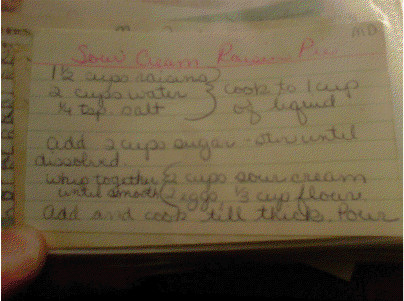 Sour Cream Raisin Pie MD
1½ cups raisins
2 cups water cook to 1 cup
¼ tsp. salt of liquid
add 2 cups sugar - stir until
dissolved.
whip together 2 cups sour cream
until smooth 2 eggs, ⅓ cup flour.
add and cook till thick. Pour